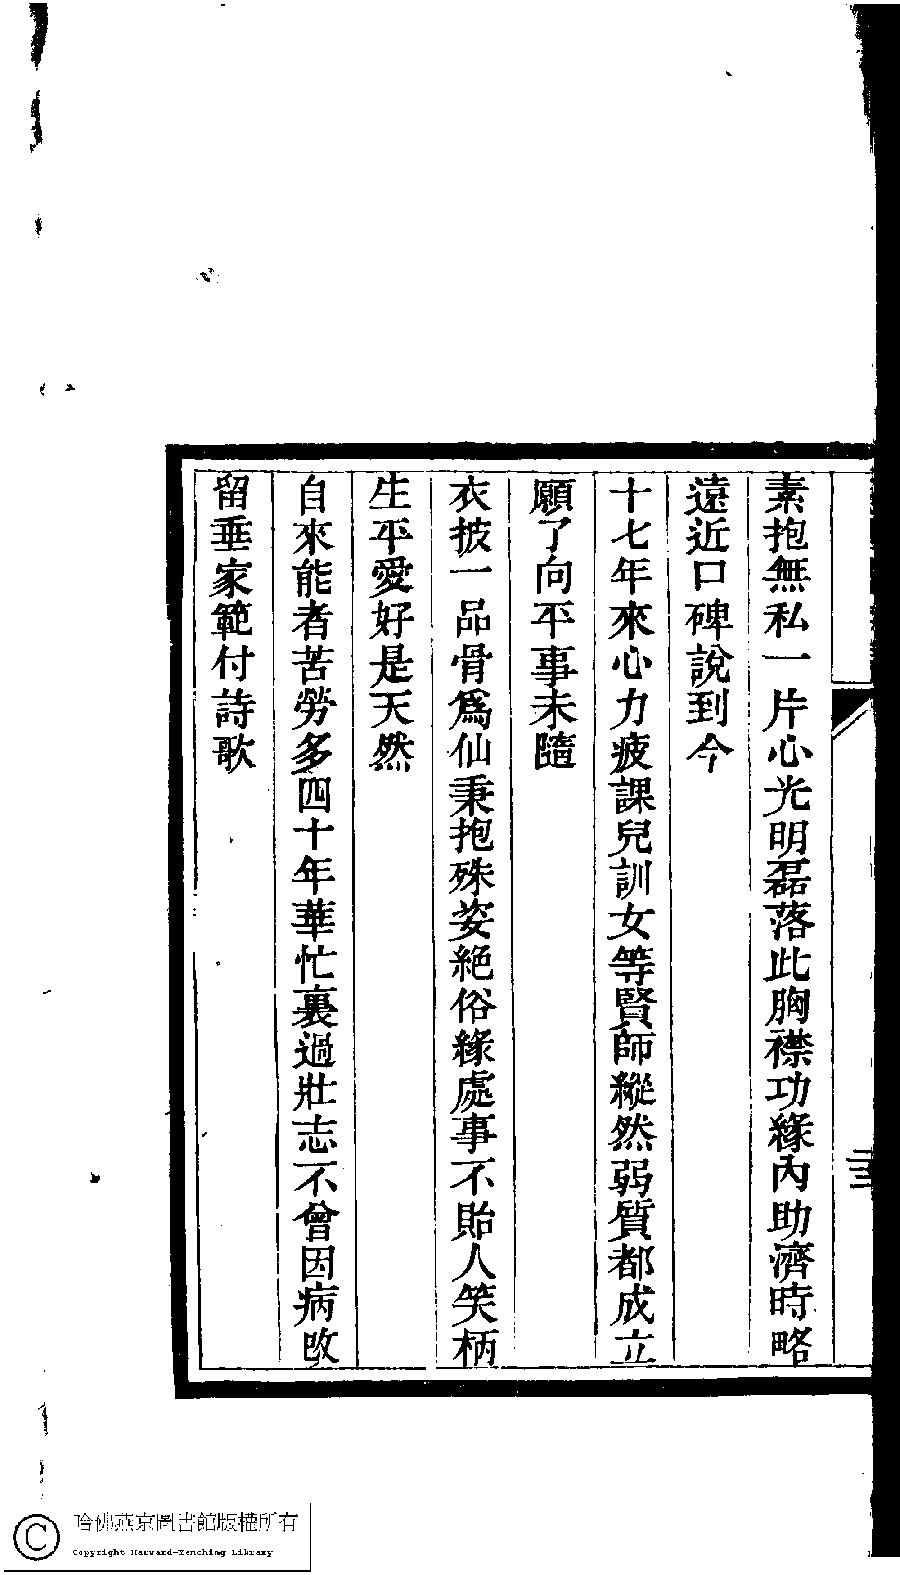 素抱無私一片心光明磊落此胸襟功緣內助濟時略
遠近口碑說到今
十七年來心力疲課兒訓女等賢師縱然弱質都成立
願了向平事未隨
衣披一品骨爲仙秉抱殊姿絕俗緣處事不貽人笑柄
生平愛好是天然
自來能者苦勞多四十年華忙裏過壯志不曾因病改
留垂家範付詩歌
三
哈佛燕京圖書館版權所有
Copyright Harvard-Yenching Library